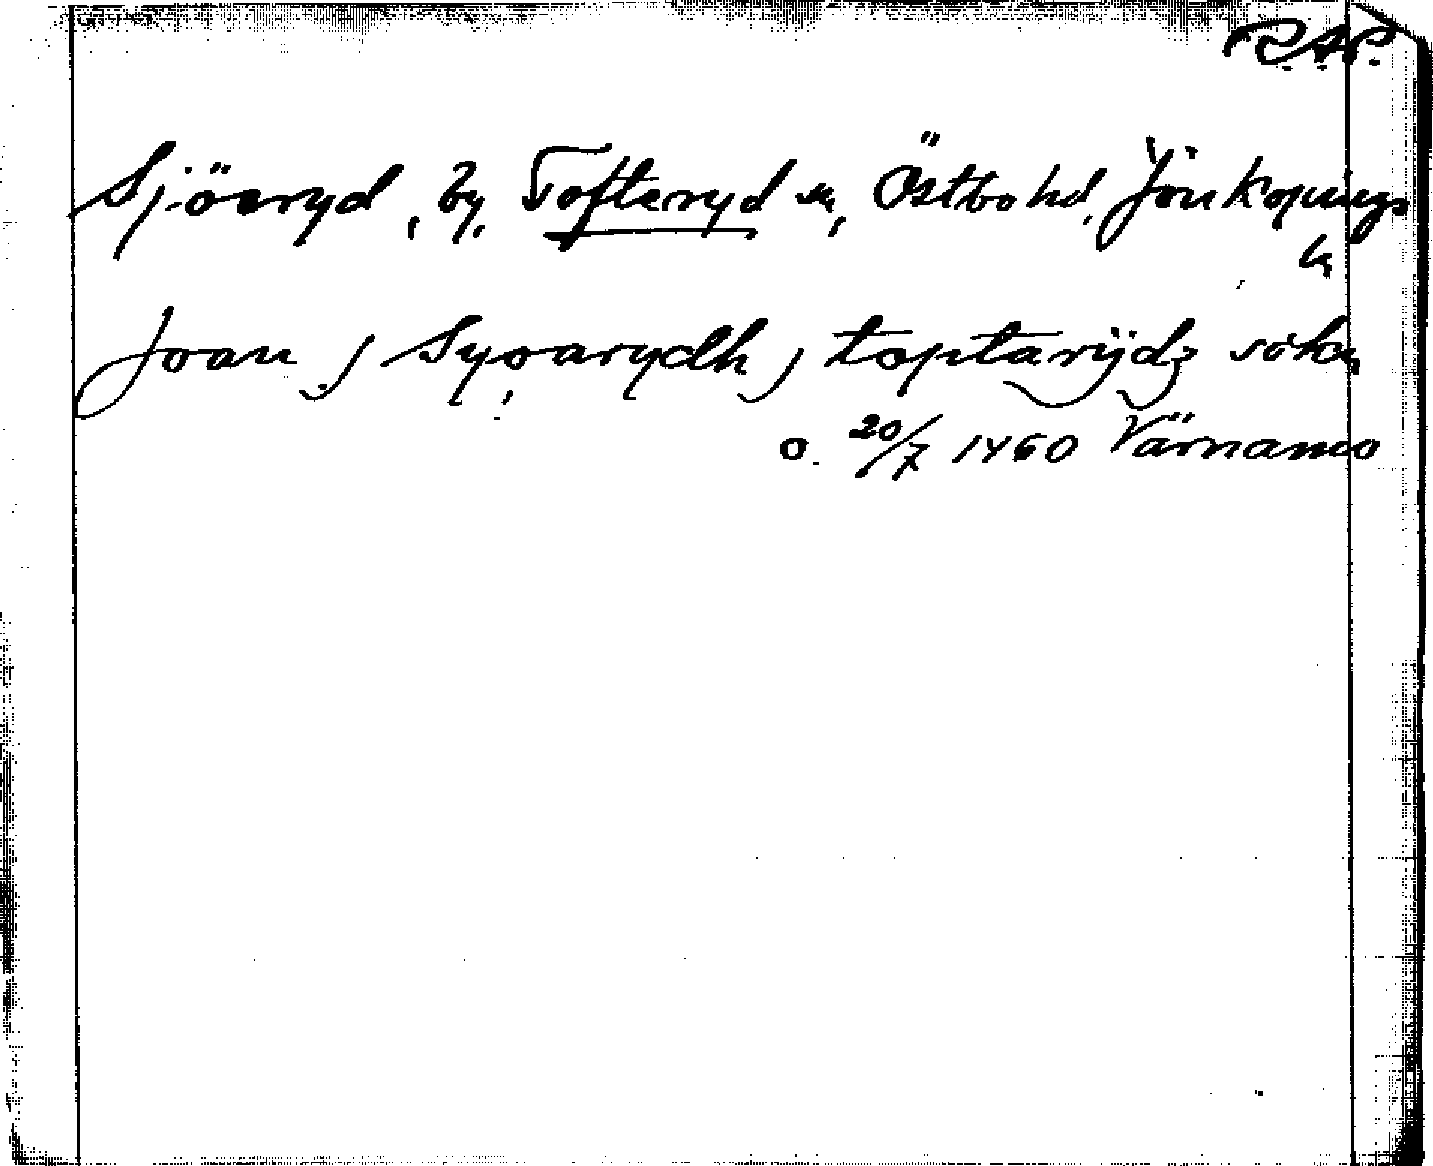 R.A.P.
Sjöaryd, by, Tofteryd sn, Östbo hd, Jönköpings
ln
Joan j Syoarydh j toptarijdz sokn
o. 20/7 1460 Värnamo